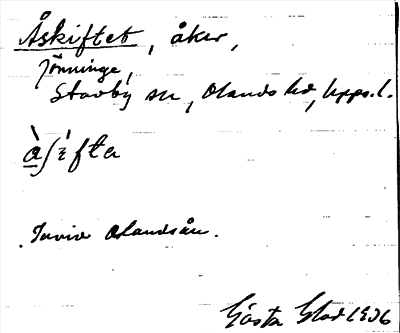 Åskiftet, åker,
Jönninge,
Stavby sn, Olands hd, Upps. l.
Invid Olandsån.
Gösta 1936